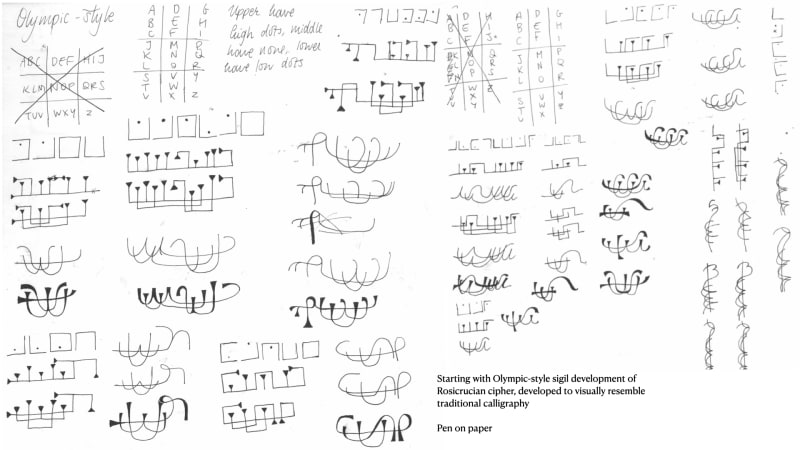 Olympic-style
ABC DEF HIJ
KLM NOP QRS
TUV WXY Z
A D G
B E H
C F I
J M P
K N Q
L O R
S V Y
T W Z
V X
Upper have
high dots, middle
have none, lower
have low dots
A D G
B E H
C F I
J M P
K N Q
L O R
S V Y
T W Z
V X
Starting with Olympic-style sigil development of
Rosicrucian cipher, developed to visually resemble
traditional calligraphy
Pen on paper